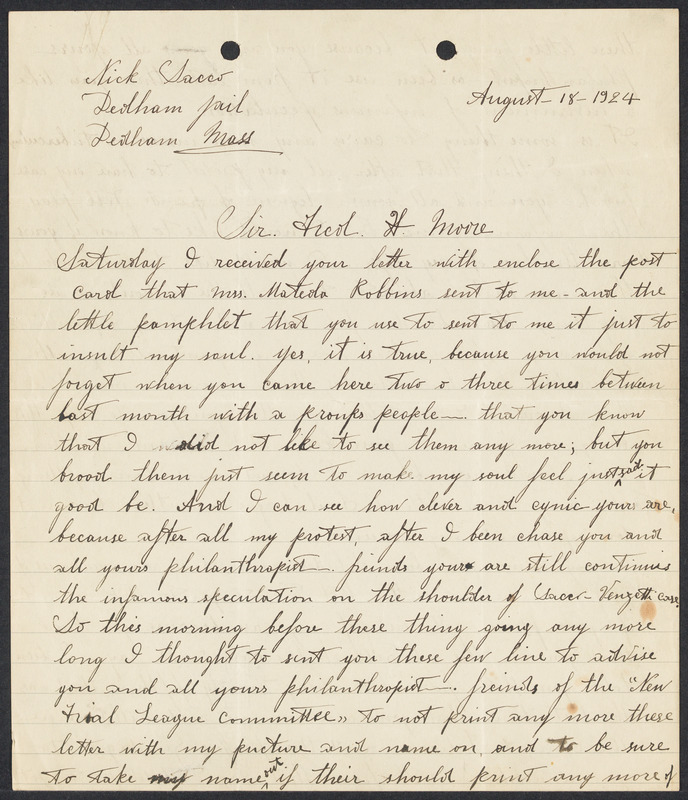 Nick Sacco
Dedham Jail
Dedham Mass
August-18-1924
Sir. Fred. H. Moore
Saturday I received your letter with enclose the post
card that mrs. Mateola Robbins sent to me - and the
little pamphlet that you use to sent to me it just to
insult my soul. Yes, it is true, because you would not
forget when you came here two o three times between
last month with a kroups people—. that you know
that I did not like to see them any more; but you
brood them just seem to make my soul feel just sad it
good be. And I can see how clever and cynic yours are,
because after all my protest, after I been chase you and
all yours philanthropist—. freinds yours are still continues
the infamous speculation on the shoulder of Sacco-Venzetti case.
So this morning before these thing going any more
long I thought to sent you these few line to advise
you and all yours philanthropist—. freinds of the "New
Trial League Committee" to not print any more these
letter with my pucture and name on, and to be sure
to take my name out if their should print any more of